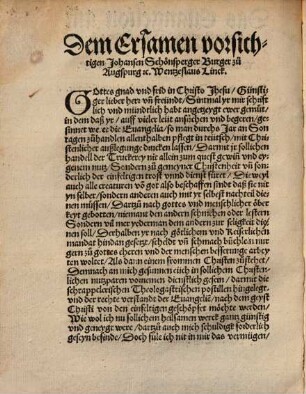 Dem Ersamen vorsich-
tigen Johansen Schönsperger Burger zů
Augspurg ꝛc. Wentzeslaus Linck.
GOttes gnad vnd frid in Christo Jhesu / Günsti-
ger lieber herr vñ freünde / Sintmal yr mir schrift-
lich vnd mündtlich habt angezeygt ewer gemüt /
in dem daß yr / auff vieler leüt ansůchen vnd begeren / ge-
sinnet die Euangelia / so man durchs Jar an Son-
tagen zůhandlen allenthalben pflegt in teütsch / mit Chri-
stenlicher außlegunge drucken lassen / Darmit yr sollichen
handel der Truckerey nit alleyn zum quest gewin vnd ey-
genem nutz / Sondern zů gemeyner Christenheit vñ son-
derlich der einfeltigen trost vnnd dienst füret / Dieweyl
auch alle creaturen vō got also beschaffen sind daß sie nit
yn selber / sondern andern auch mit yr selbest nachteil die-
nen müssen / Dartzů nach gottes vnd menschlicher ober-
keyt gebotten / niemant den andern schmehen oder lestern
Sondern vil mer yederman den andern zur seligkeit die-
nen soll / Derhalben yr nach götlichem vnd Keiserlichem
mandat hindan gesetzt / schelt vñ schmach büchlen nur
gern zů gottes eheren vnd der menschen besserunge arbey-
ten woltet / Als dañ einem frommen Christen zůstehet /
Demnach an mich gesunnen eüch in sollichem Christen-
lichen nutzparen vornemen dienstlich gesein / darmit die
schrappelerischen Theologastrischen postillen hingelegt /
vnd der rechte verstandt der Euangelii / nach dem geyst
Christi von den einfeltigen geschöpfet möchte werden /
Wie wol ich nu sollichem heilsamen werck gantz günstig
vnd geneygt were / dartzů auch mich schuldig forderlich
gesein befinde / Doch süle ich nit in mir das vermügen /